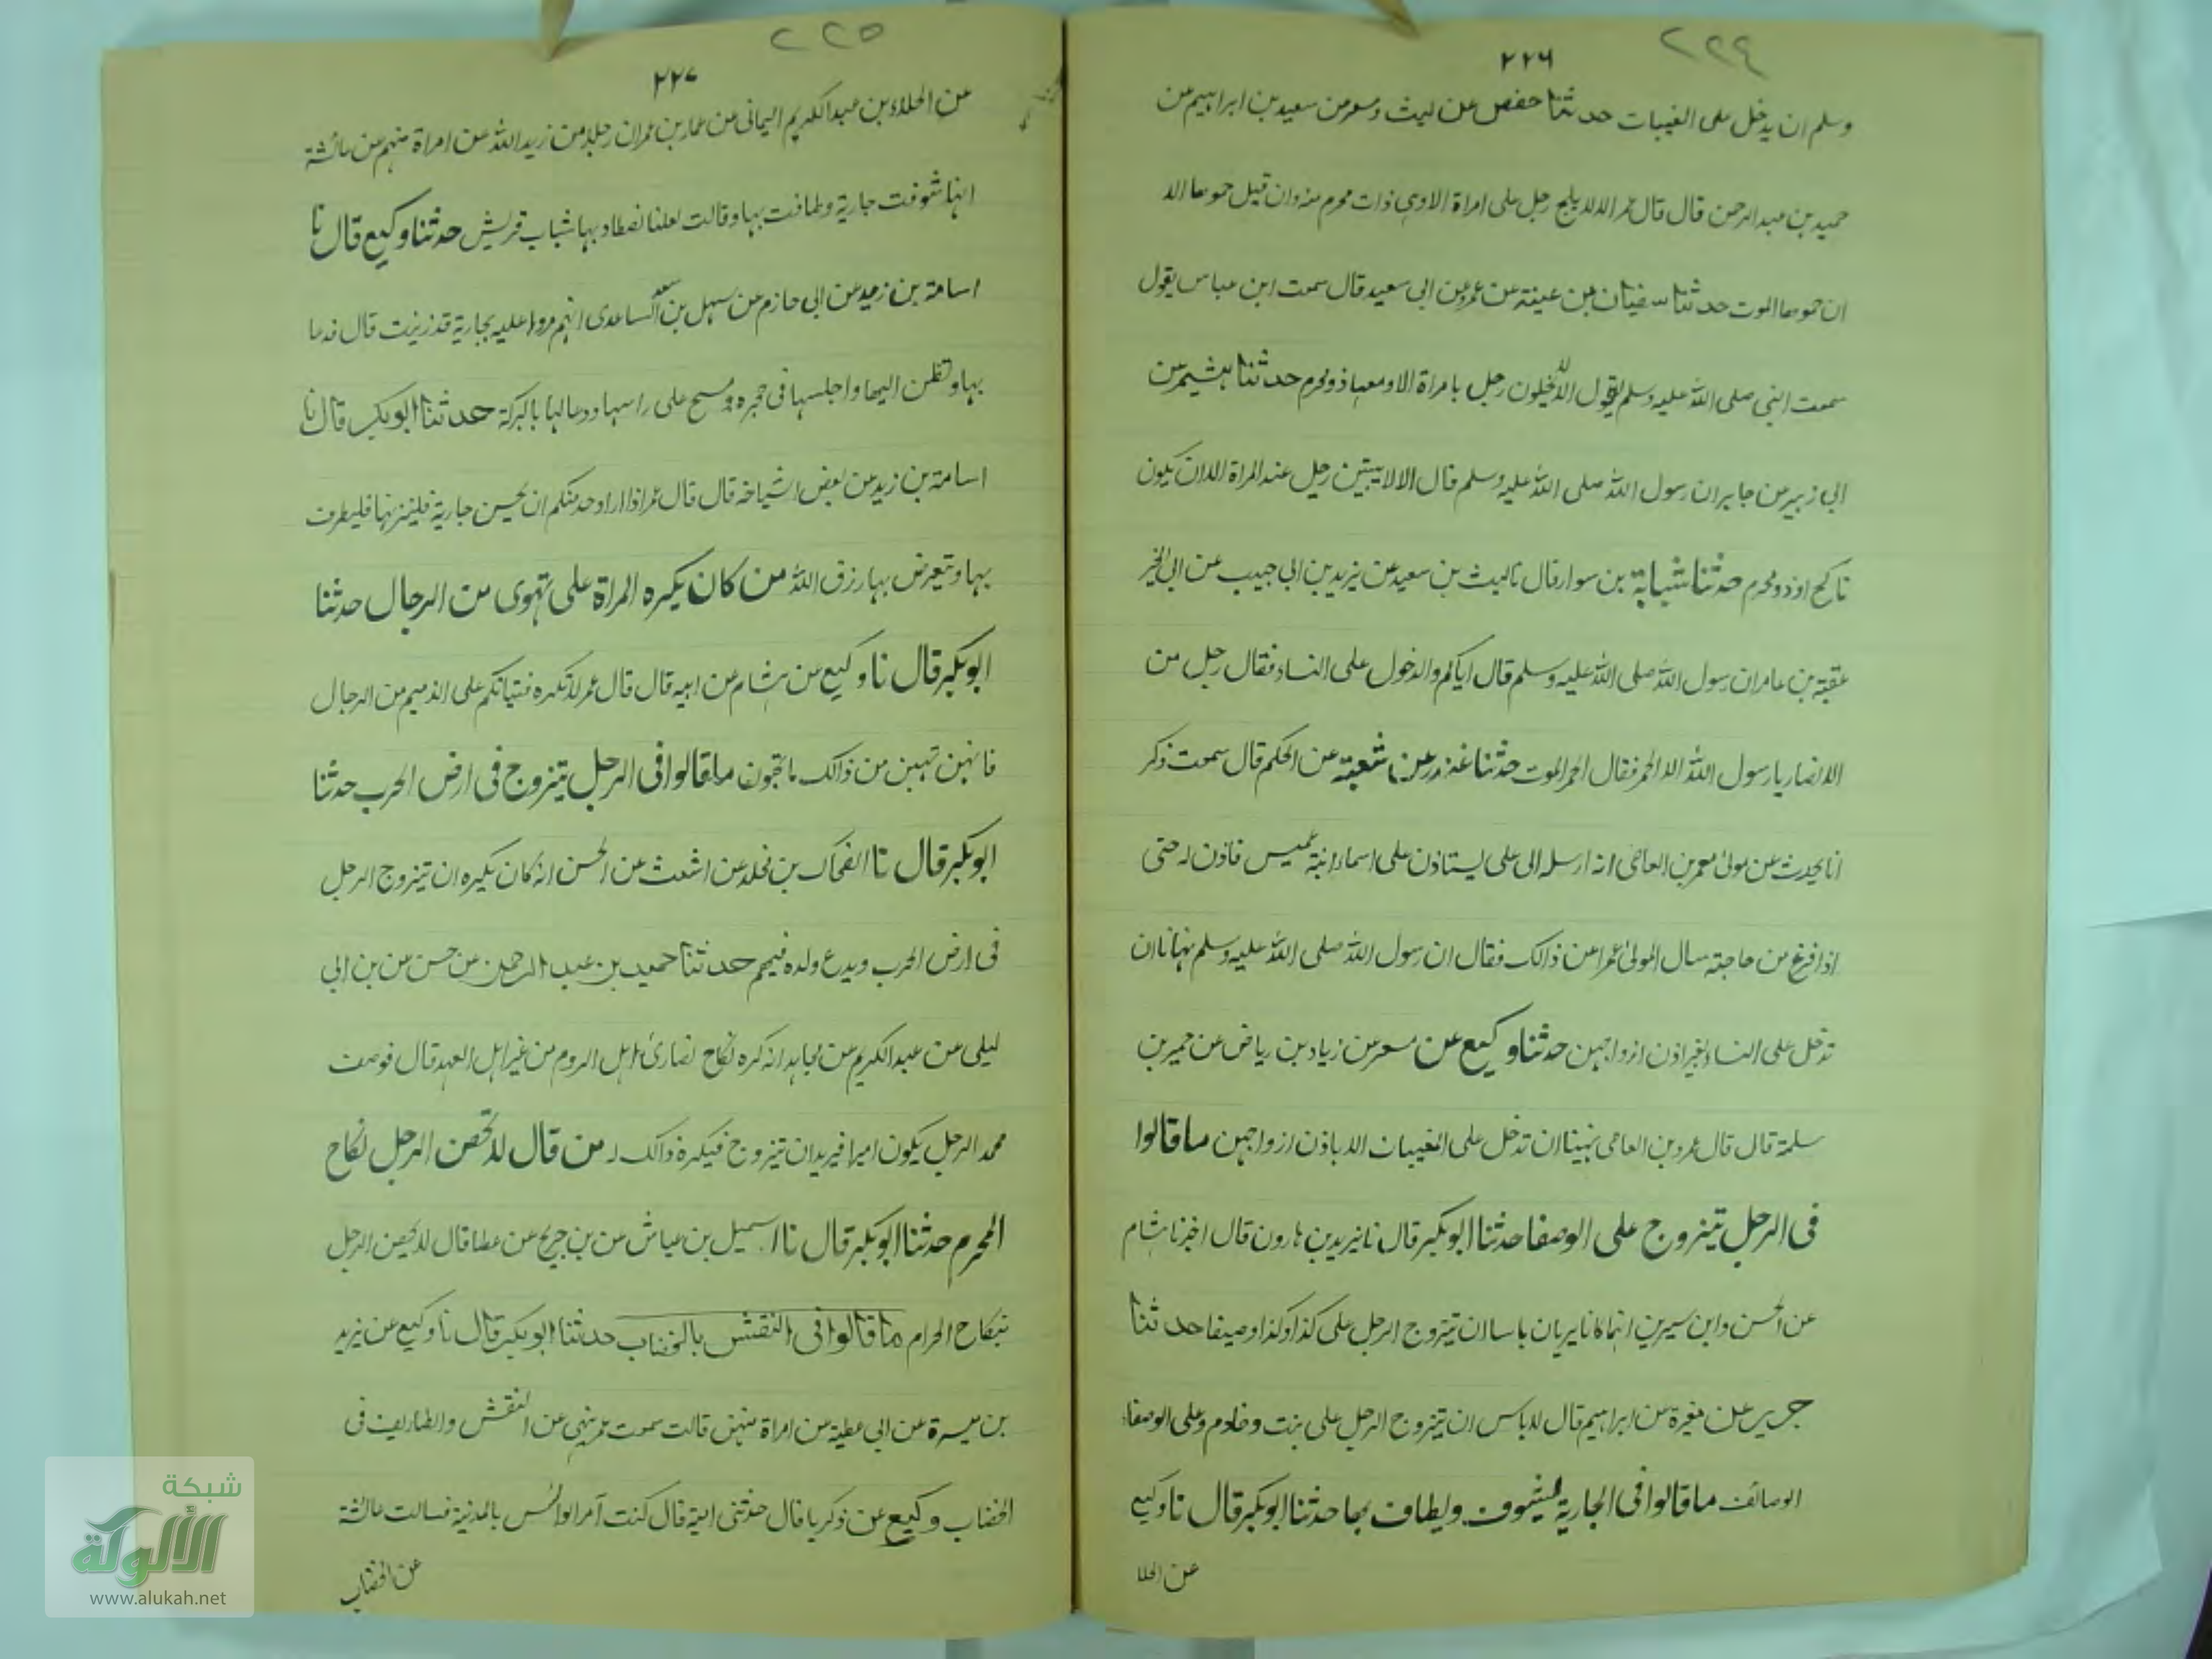 ٢٢٤
٢٢٦
وسلم ان يدخل على المغيبات حدثنا حفص عن ليث ومسعر عن سعيد بن ابراهيم عن
حميد بن عبد الرحمن قال قال عمر الا لا يلج رجل على امراة الا وهي ذات محرم منه وان قيل حموها الا
ان حموها الموت حدثنا سفيان بن عينة عن عمرو عن ابي سعيد قال سمعت ابن عباس يقول
سمعت النبي صلى الله عليه وسلم يقول الا لا يخلون رجل بامراة الا ومعها ذو محرم حدثنا هشيم عن
ابي زبير عن جابر ان رسول الله صلى الله عليه وسلم قال الا لا يبيتن رجل عند المراة الا ان يكون
ناكح او ذو محرم حدثنا شبابة بن سوار قال نا ليث بن سعيد عن يزيد بن ابي حبيب عن ابي الخير
عقبة بن عامر ان رسول الله صلى الله عليه وسلم قال اياكم والدخول على النساء فقال رجل من
الانصار يا رسول الله الا الحمر فقال الحمر الموت حدثنا غندر عن شعبة عن الحكم قال سمعت ذكر
انا يحدث عن مولى عمر بن العاص انه ارسله الى على يستاذن على اسماء ابنة عميس فاذن له حتى
اذا فرغ من حاجته سال المولى عمرا عن ذالك فقال ان رسول الله صلى الله عليه وسلم نهانا ان
تدخل على النساء بغير اذن ازواجهن حدثنا وكيع عن مسعر عن زياد بن رياض عن حمير بن
سلمة قال قال عمرو بن العاص نهينا ان تدخل على المغيبات الا باذن ازواجهن ما قالوا
في الرجل يتزوج على الوصفا حدثنا ابو بكر قال نا يزيد بن هارون قال اخبرنا هشام
عن الحسن وابن سيرين انهما كانا يريان باسا ان يتزوج الرجل على كذا وكذا وصيفا حدثنا
جرير عن مغيرة عن ابراهيم قال لا باس ان يتزوج الرجل على بنت وخادم وعلى الوصفاء
الوصائف ما قالوا في الجارية تشوف ويطاف بها حدثنا ابو بكر قال نا وكيع
عن العلا
٢٢٥
٢٢٧
عن العلاء بن عبد الكريم اليمانى عن عمار بن عمران رجل من زيد الله عن امراة منهم عن عائشة
انها شوفت جارية وطافت بها وقالت لعلنا نصطاد بها شباب قريش حدثنا وكيع قال نا
اسامة بن زيد عن ابي حازم عن سهل بن سعد الساعدى انهم مروا عليه بجارية قد زينت قال فدعا
بها ونظر اليها واجلسها في حجره ومسح على راسها ودعا لها بالبركة حدثنا ابو بكر قال نا
اسامة بن زيد عن بعض اشياخه قال قال عمر اذا اراد احد منكم ان يحسن جارية فليزينها فليطرف
بها ويتعرض بها رزق الله من كان يكره المراة على تهوى من الرجال حدثنا
ابو بكر قال نا وكيع عن هشام عن ابيه قال قال عمر لا تكره فتياتكم على الذميم من الرجال
فانهن تحبن من ذالك ما تحبون ما قالوا في الرجل يتزوج في ارض الحرب حدثنا
ابو بكر قال نا الضحاك بن مخلد عن اشعث عن الحسن انه كان يكره ان يتزوج الرجل
في ارض الحرب ويدع ولده فيهم حدثنا حميد بن عبد الرحمن عن حسن عن بن ابي
ليلى عن عبد الكريم عن مجاهد انه كره نكاح نصارى اهل الروم من غير اهل العهد قال فوصف
محمد الرجل يكون اسيرا فيريد ان يتزوج فيكره ذالك له من قال لا تحصن الرجل نكاح
المحرم حدثنا ابو بكر قال نا اسمعيل بن عياش عن بن جريج عن عطا قال لا يحصن الرجل
بنكاح الحرام ما قالوا في النقش بالخضاب حدثنا ابو بكر قال نا وكيع عن يزيد
بن ميسرة عن ابي عطية عن امراة منهن قالت سمعت عمر ينهى عن النقش والتطاريف في
الخضاب وكيع عن ذكريا قال حدثتنى امية قال كنت آمر العرائس بالمدينة فسالت عائشة
عن الخضاب
شبكة
الألوكة
www.alukah.net